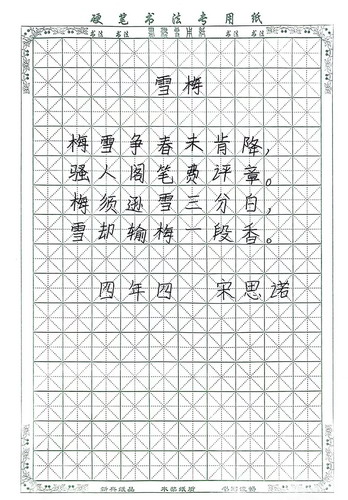 硬笔书法专用纸
书法 书法 书法 书法
雪梅
梅雪争春未肯降，
骚人阁笔费评章。
梅须逊雪三分白，
雪却输梅一段香。
四年四 宋思诺